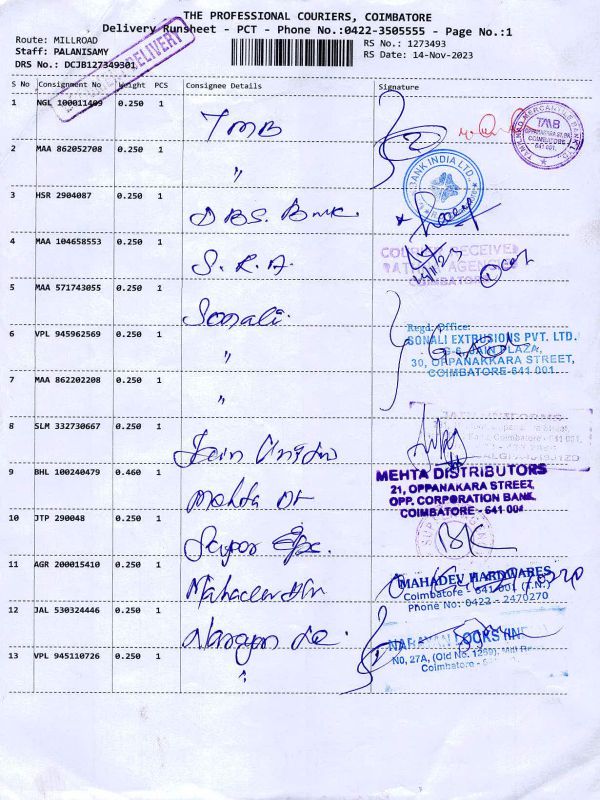 THE PROFESSIONAL COURIERS, COIMBATORE
Delivery Runsheet - PCT - Phone No.:0422-3505555 - Page No.:1
Route: MILLROAD
RS No.: 1273493
Staff: PALANISAMY
RS Date: 14-Nov-2023
DRS No.: DCJB127349301
DELIVERY
S No Consignment No Weight PCS Consignee Details Signature
1 NGL 100011409 0.250 1 TMB
TAMILNAD MERCANTILE BANK
TMB
COIMBATORE
641 001.
2 MAA 862052708 0.250 1 "
BANK INDIA LTD.
3 HSR 2904087 0.250 1 DBS. Bank.
4 MAA 104658553 0.250 1 S. R. A.
COURIER RECEIVED
AGENCIES
COIMBATORE
14/11/23
5 MAA 571743055 0.250 1 Sonali.
Regd. Office:
SONALI EXTRUSIONS PVT. LTD.
G-6, JAIN PLAZA,
30, OPPANAKKARA STREET,
COIMBATORE-641 001.
6 VPL 945962569 0.250 1 "
7 MAA 862202208 0.250 1 "
8 SLM 332730667 0.250 1 Jain
Coimbatore - 641 001.
9 BHL 100240479 0.460 1 Mehta
MEHTA DISTRIBUTORS
21, OPPANAKARA STREET,
OPP. CORPORATION BANK,
COIMBATORE - 641 001
10 JTP 290048 0.250 1
BK
11 AGR 200015410 0.250 1 Mahadev
MAHADEV HARDWARES
Coimbatore - 641 001 (T.N.)
Phone No: 0422 - 2470270
12 JAL 530324446 0.250 1 Narayan
NARAYAN LOCKS
NO, 27A, (Old No. 1269), Mill
Coimbatore -
13 VPL 945110726 0.250 1 "